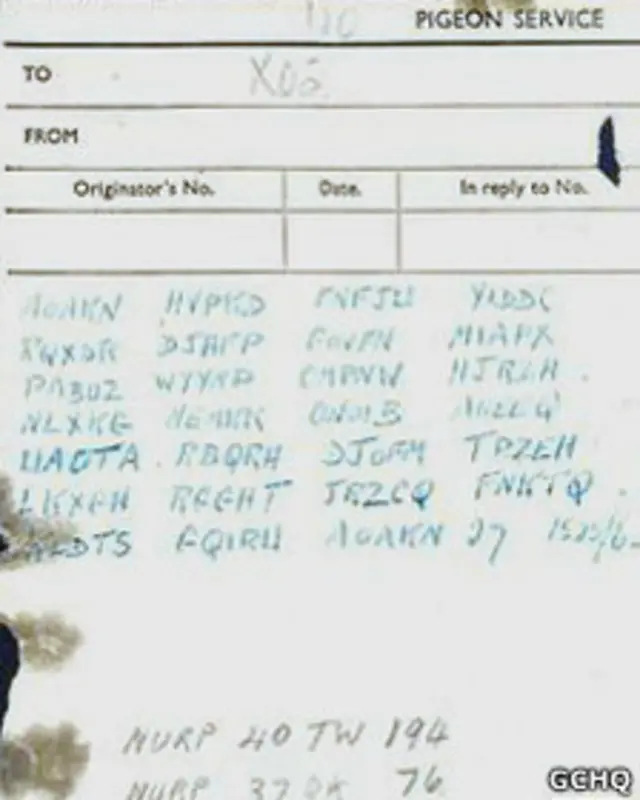 PIGEON SERVICE
TO X02
FROM
Originator's No. Date. In reply to No.
AOAKN HVPKD FNFJU YIDDC
RQXSR DJHFP GOVFN MIAPX
PABUZ WYYNP CMPNW HJRZH
NLXKG MEMKK ONOIB
UAOTA RBQRH DJOFM TPZEH
LKXGH RGGHT JRZCQ FNKTQ
KLDTS GQIRU AOAKN 27 1525/6
NURP 40 TW 194
NURP 37 DK 76
GCHQ